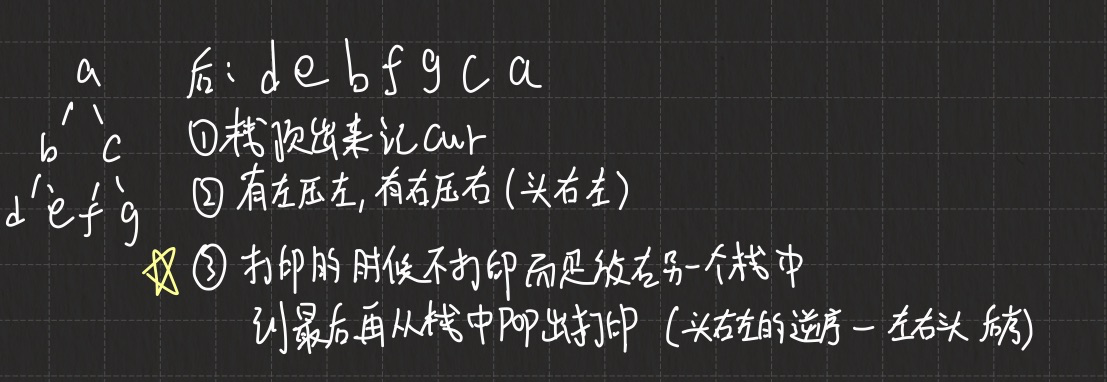 a
后: d e b f g c a
①栈顶出来记cur
b c
②有左压左,有右压右(头右左)
d e f g
③打印的时候不打印而是放在另一个栈中
到最后再从栈中pop出打印 (头右左的逆序一左右头 后序)